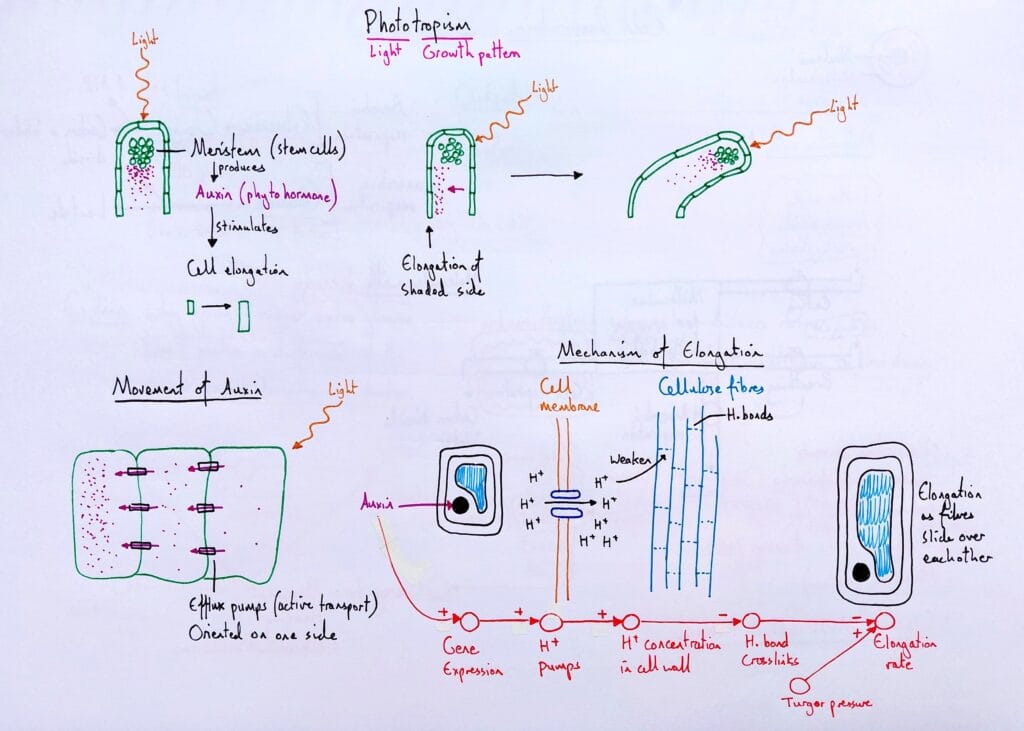 Phototropism
Light Growth pattern
Light
Meristem (stem cells)
produces
Auxin (phytohormone)
stimulates
Cell elongation
Light
Elongation of
shaded side
Light
Movement of Auxin
Light
Efflux pumps (active transport)
Oriented on one side
Mechanism of Elongation
Cell
membrane
Cellulose fibres
H. bonds
Weaken
H+
H+
H+
H+
H+
H+
H+
H+
Auxin
Elongation
as fibres
slide over
eachother
+
+
+
-
-
+
Gene
Expression
H+
pumps
H+ concentration
in cell wall
H. bond
Crosslinks
Elongation
rate
Turgor pressure